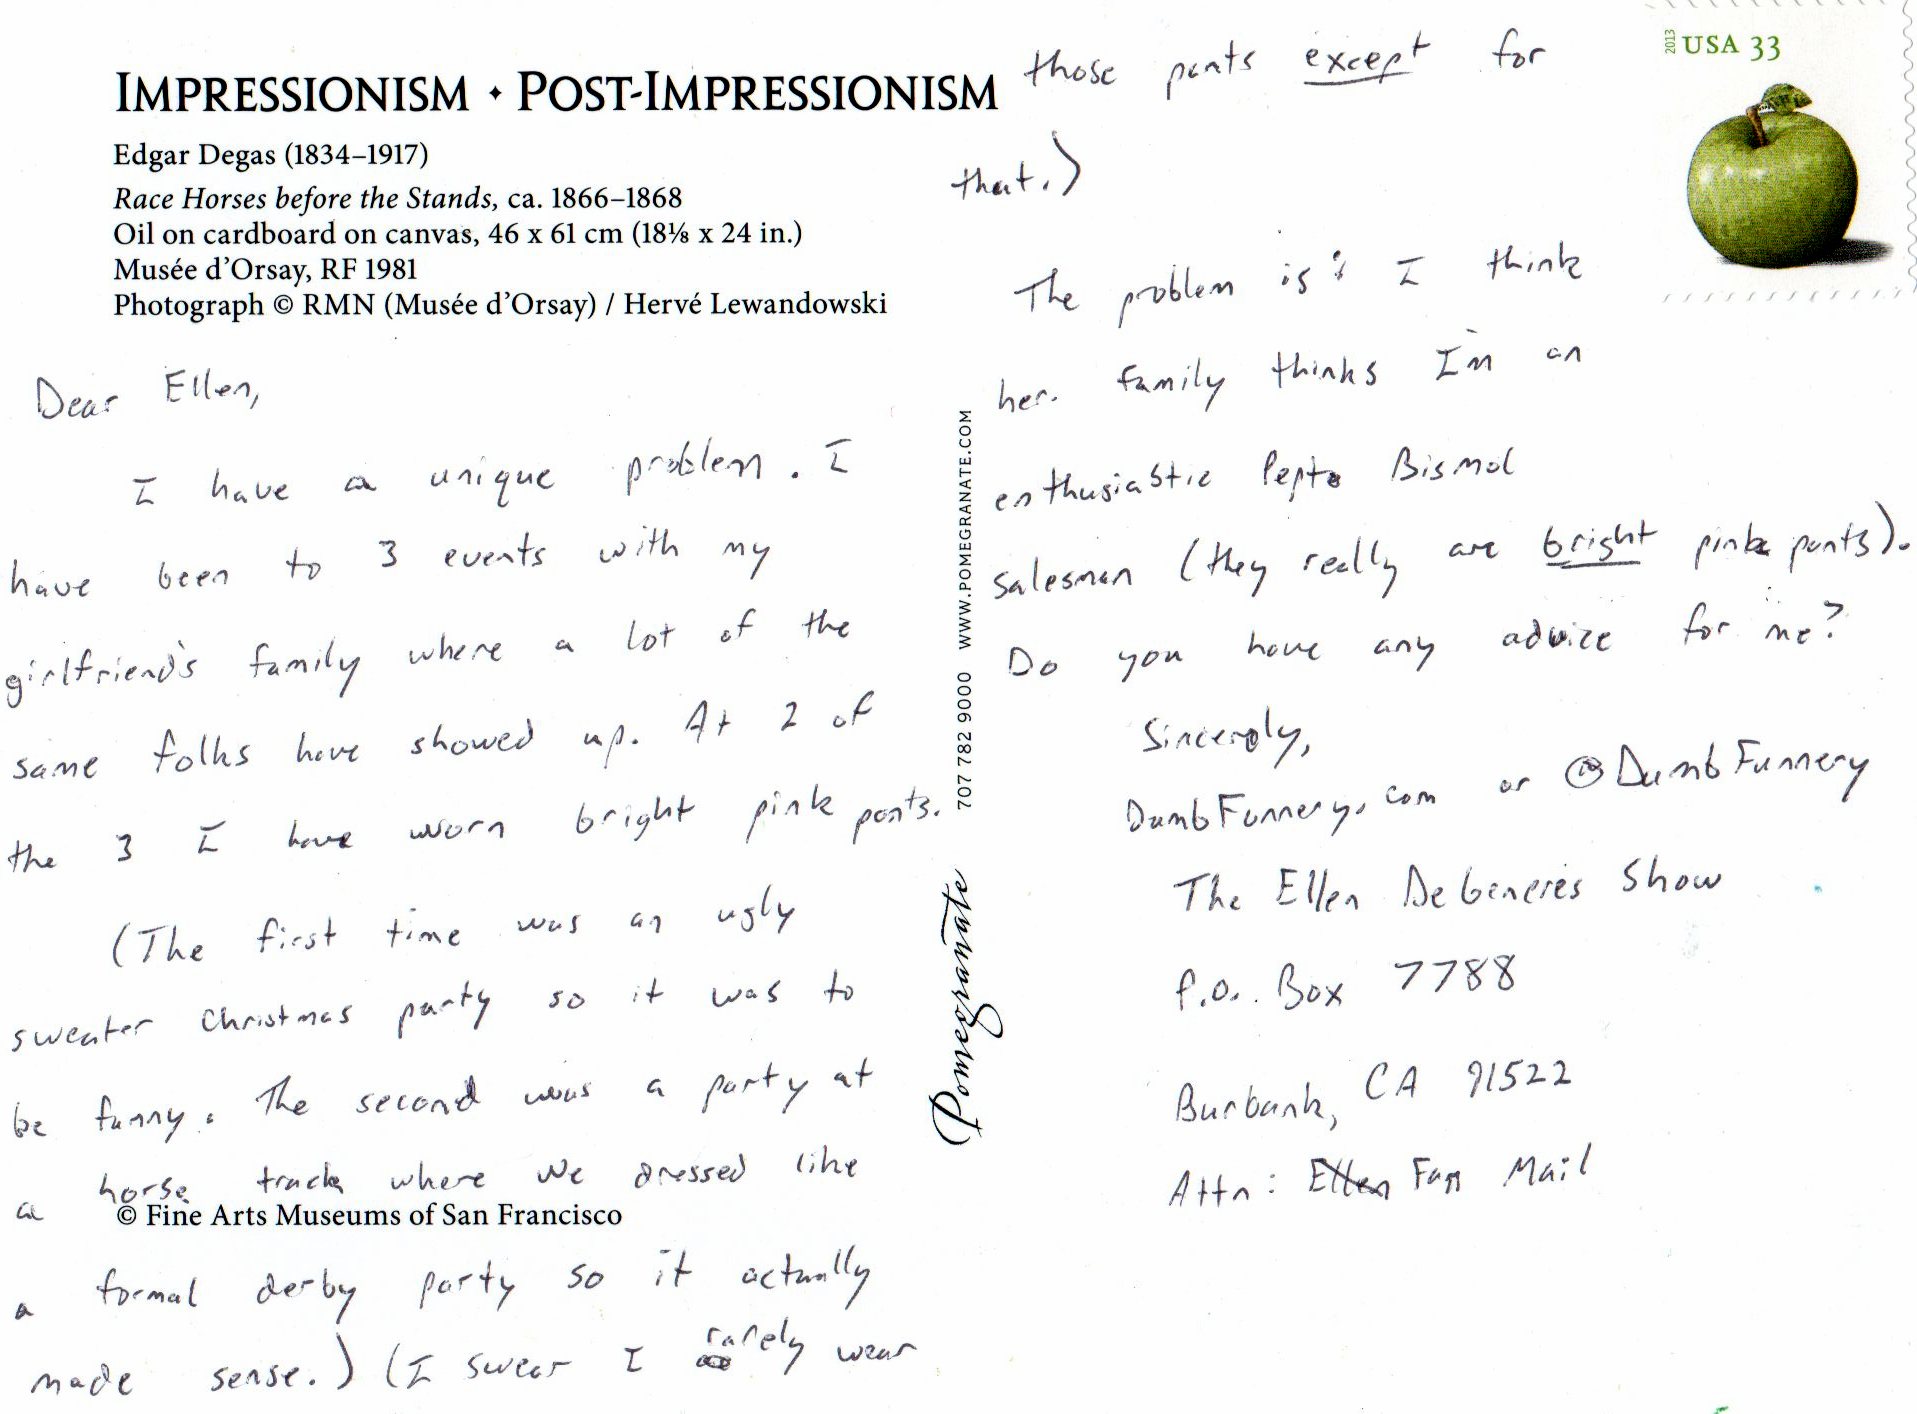 IMPRESSIONISM • POST-IMPRESSIONISM
Edgar Degas (1834–1917)
Race Horses before the Stands, ca. 1866–1868
Oil on cardboard on canvas, 46 x 61 cm (18⅛ x 24 in.)
Musée d'Orsay, RF 1981
Photograph © RMN (Musée d'Orsay) / Hervé Lewandowski
Dear Ellen,
I have a unique problem. I
have been to 3 events with my
girlfriend's family where a lot of the
same folks have showed up. At 2 of
the 3 I have worn bright pink pants.
(The first time was an ugly
sweater Christmas party so it was to
be funny. The second was a party at
a horse track where we dressed like
© Fine Arts Museums of San Francisco
a formal derby party so it actually
made sense.) (I swear I rarely wear
707 782 9000 WWW.POMEGRANATE.COM
Pomegranate
those pants except for
that.)
The problem is: I think
her family thinks I'm an
enthusiastic Pepto Bismol
salesman (they really are bright pink pants).
Do you have any advice for me?
Sincerely,
DumbFunnery.com or @DumbFunnery
The Ellen DeGeneres Show
P.O. Box 7788
Burbank, CA 91522
Attn: Ellen Fan Mail
2013 USA 33